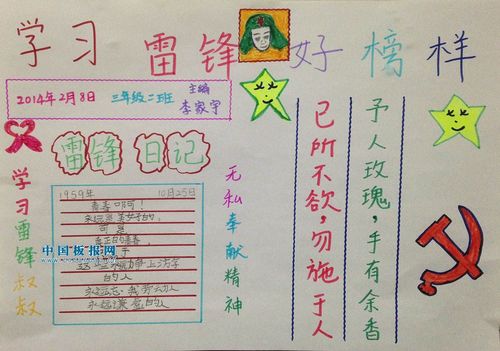 学习雷锋好榜样
2014年2月8日 三年级二班 主编 李家宇
雷锋日记
1959年 10月25日
青春啊！
永远是美好的，
可是
真正的青春
的人
永远谦虚的人
学习雷锋叔叔
无私奉献精神
己所不欲，勿施于人
予人玫瑰，手有余香
中国板报网